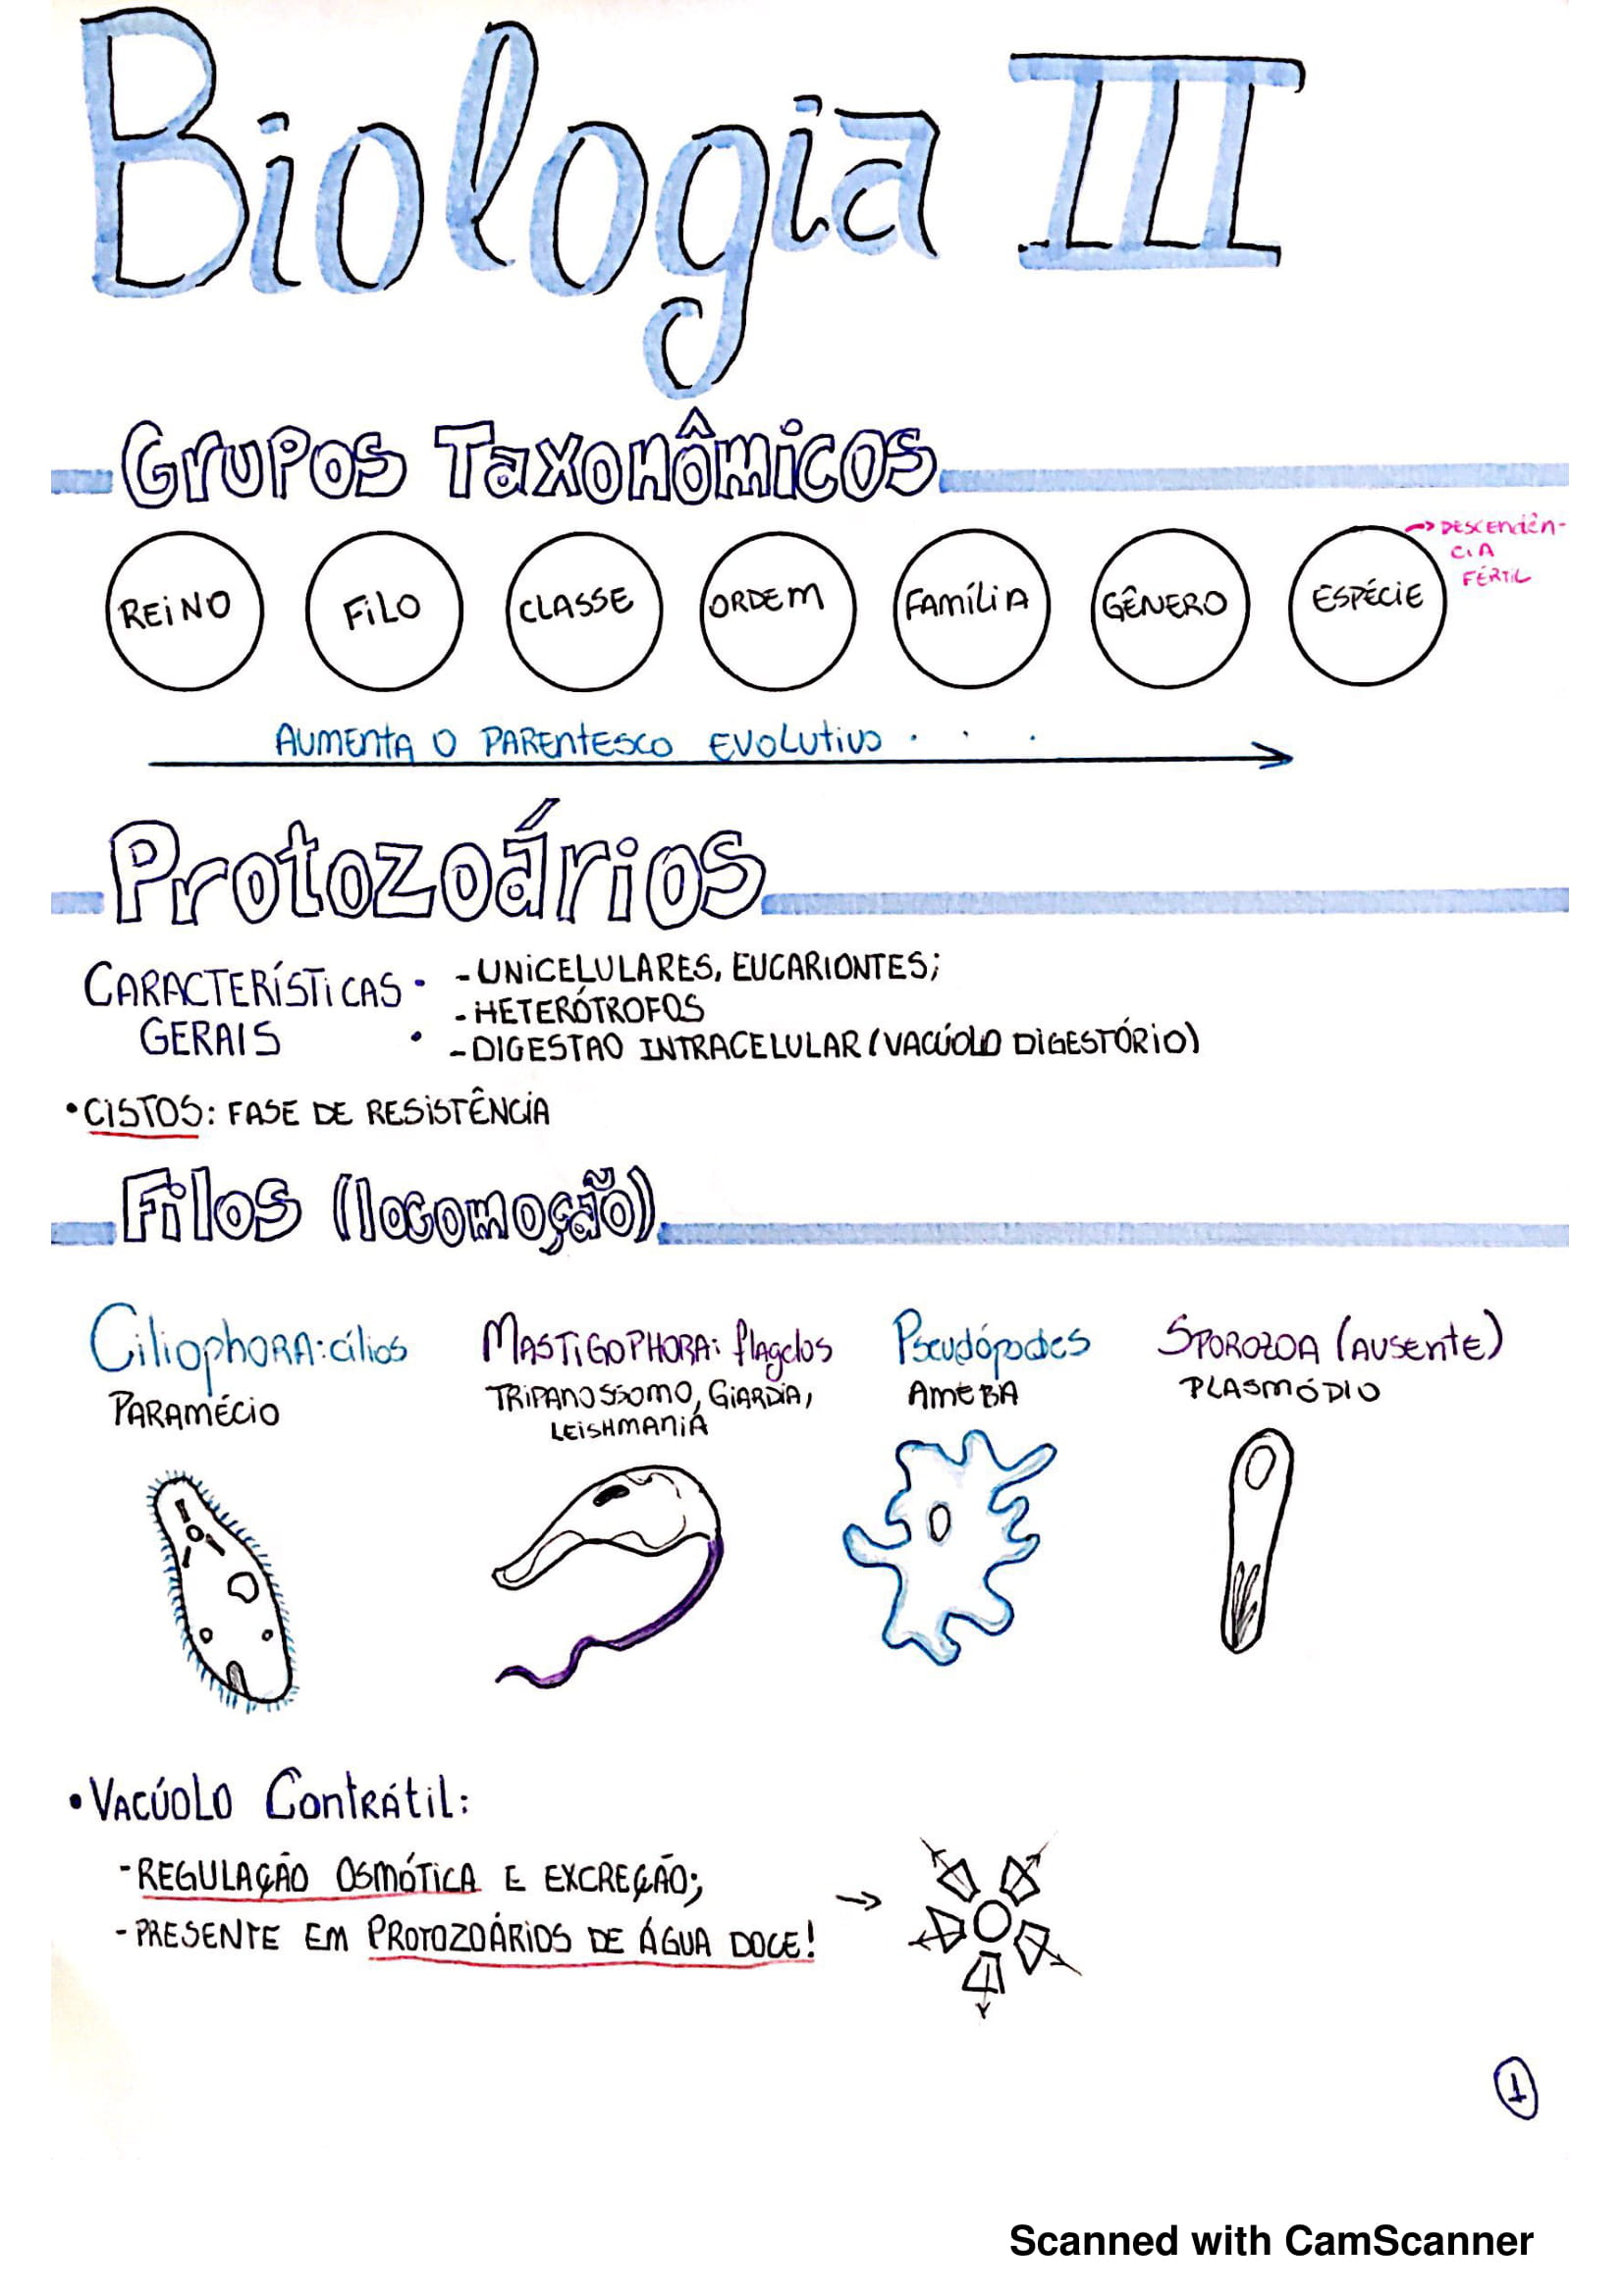 Biologia III
Grupos Taxonômicos
REINO FILO CLASSE ORDEM FAMÍLIA GÊNERO ESPÉCIE
→ DESCENDÊN-
CIA
FÉRTIL
AUMENTA O PARENTESCO EVOLUTIVO . . .
Protozoários
CARACTERÍSTICAS
GERAIS
- UNICELULARES, EUCARIONTES;
- HETERÓTROFOS
- DIGESTAO INTRACELULAR (VACÚOLO DIGESTÓRIO)
• CISTOS: FASE DE RESISTÊNCIA
Filos (locomoção)
CiliophORA: cílios
PARAMÉCIO
MASTIGOPHORA: flagelos
TRIPANOSSOMO, GIARDIA,
LEISHMANIA
Pseudópodes
AMEBA
SPOROZOA (AUSENTE)
PLASMÓDIO
• VACÚOLO CONTRÁTIL:
- REGULAÇÃO OSMÓTICA E EXCREÇÃO;
- PRESENTE EM PROTOZOÁRIOS DE ÁGUA DOCE!
→
1
Scanned with CamScanner